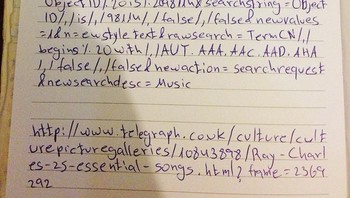 Object ID/,/20is/,/2981148&searchstring=Object
ID/,/is/,/981148/,/false/,/false&newvalues
=1&n=ewstyletext&rawsearch=TermCN/,/
begins/.20with/,/AUT.AAA.AAC.AAD.AHA
/,/false/,/false&newaction=searchrequest
&newsearchdesc=Music
http://www.telegraph.co.uk/culture/cult
urepicturegalleries/10843898/Ray-Charl
es-25-essential-songs.html?frame=2369
292